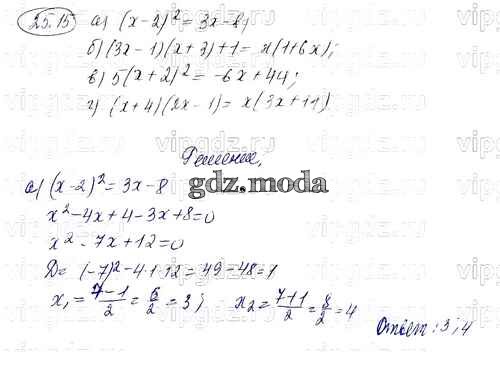 25.15 а) (x-2)² = 3x-8;
б) (3x-1)(x+3)+1 = x(1+6x);
в) 5(x+2)² = -6x+44;
г) (x+4)(2x-1) = x(3x+11)
Решение,
gdz.moda
а) (x-2)² = 3x-8
x²-4x+4-3x+8=0
x²-7x+12=0
D= (-7)²-4·1·12=49-48=1
x₁ = 7-1/2 = 6/2 = 3; x₂ = 7+1/2 = 8/2 = 4
Ответ: 3; 4